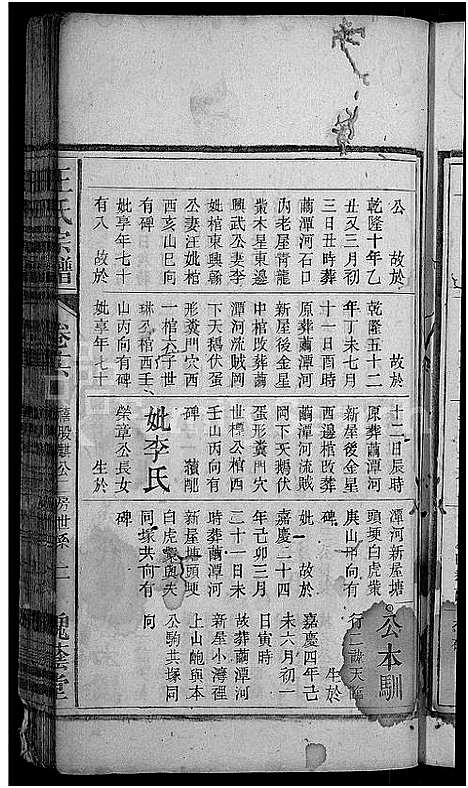 公　故於
乾隆十年乙
丑又三月初
三日丑時葬
藺潭河石口
內老屋青龍
崇木星東邊
興武公妻李
妣棺東興翰
公妻汪妣棺
酉亥山巳向
有碑
妣享年七十
有八　故於
乾隆五十二
年丁未七月
十一日酉時
原葬藺潭河
新屋後金星
中棺改葬藺
潭河流賊岡
下天鵝伏蛋
形糞門穴西
一棺六子世
琳公棺西壬
山丙向有碑
妣享年七十
故於
十二日辰時
原葬藺潭河
新屋後金星
西邊棺改葬
藺潭河流賊
岡下天鵝伏
蛋形糞門穴
世樸公棺西
壬山丙向有
碑　續配
妣李氏
榮章公長女
生於
潭河新屋塘
頭埂白虎柴
庚山甲向有
碑
妣　故於
嘉慶二十四
年己卯三月
二十一日未
時葬藺潭河
新屋塘頭埂
白虎柴與夫
同塚共向有
碑
公本馴
行二
生於
嘉慶四年己
未六月初一
日寅時
故葬藺潭河
新屋小灣徑
上山皉與本
公駒共塚同
向
汪氏宗譜
卷六
麒公二房世系
二